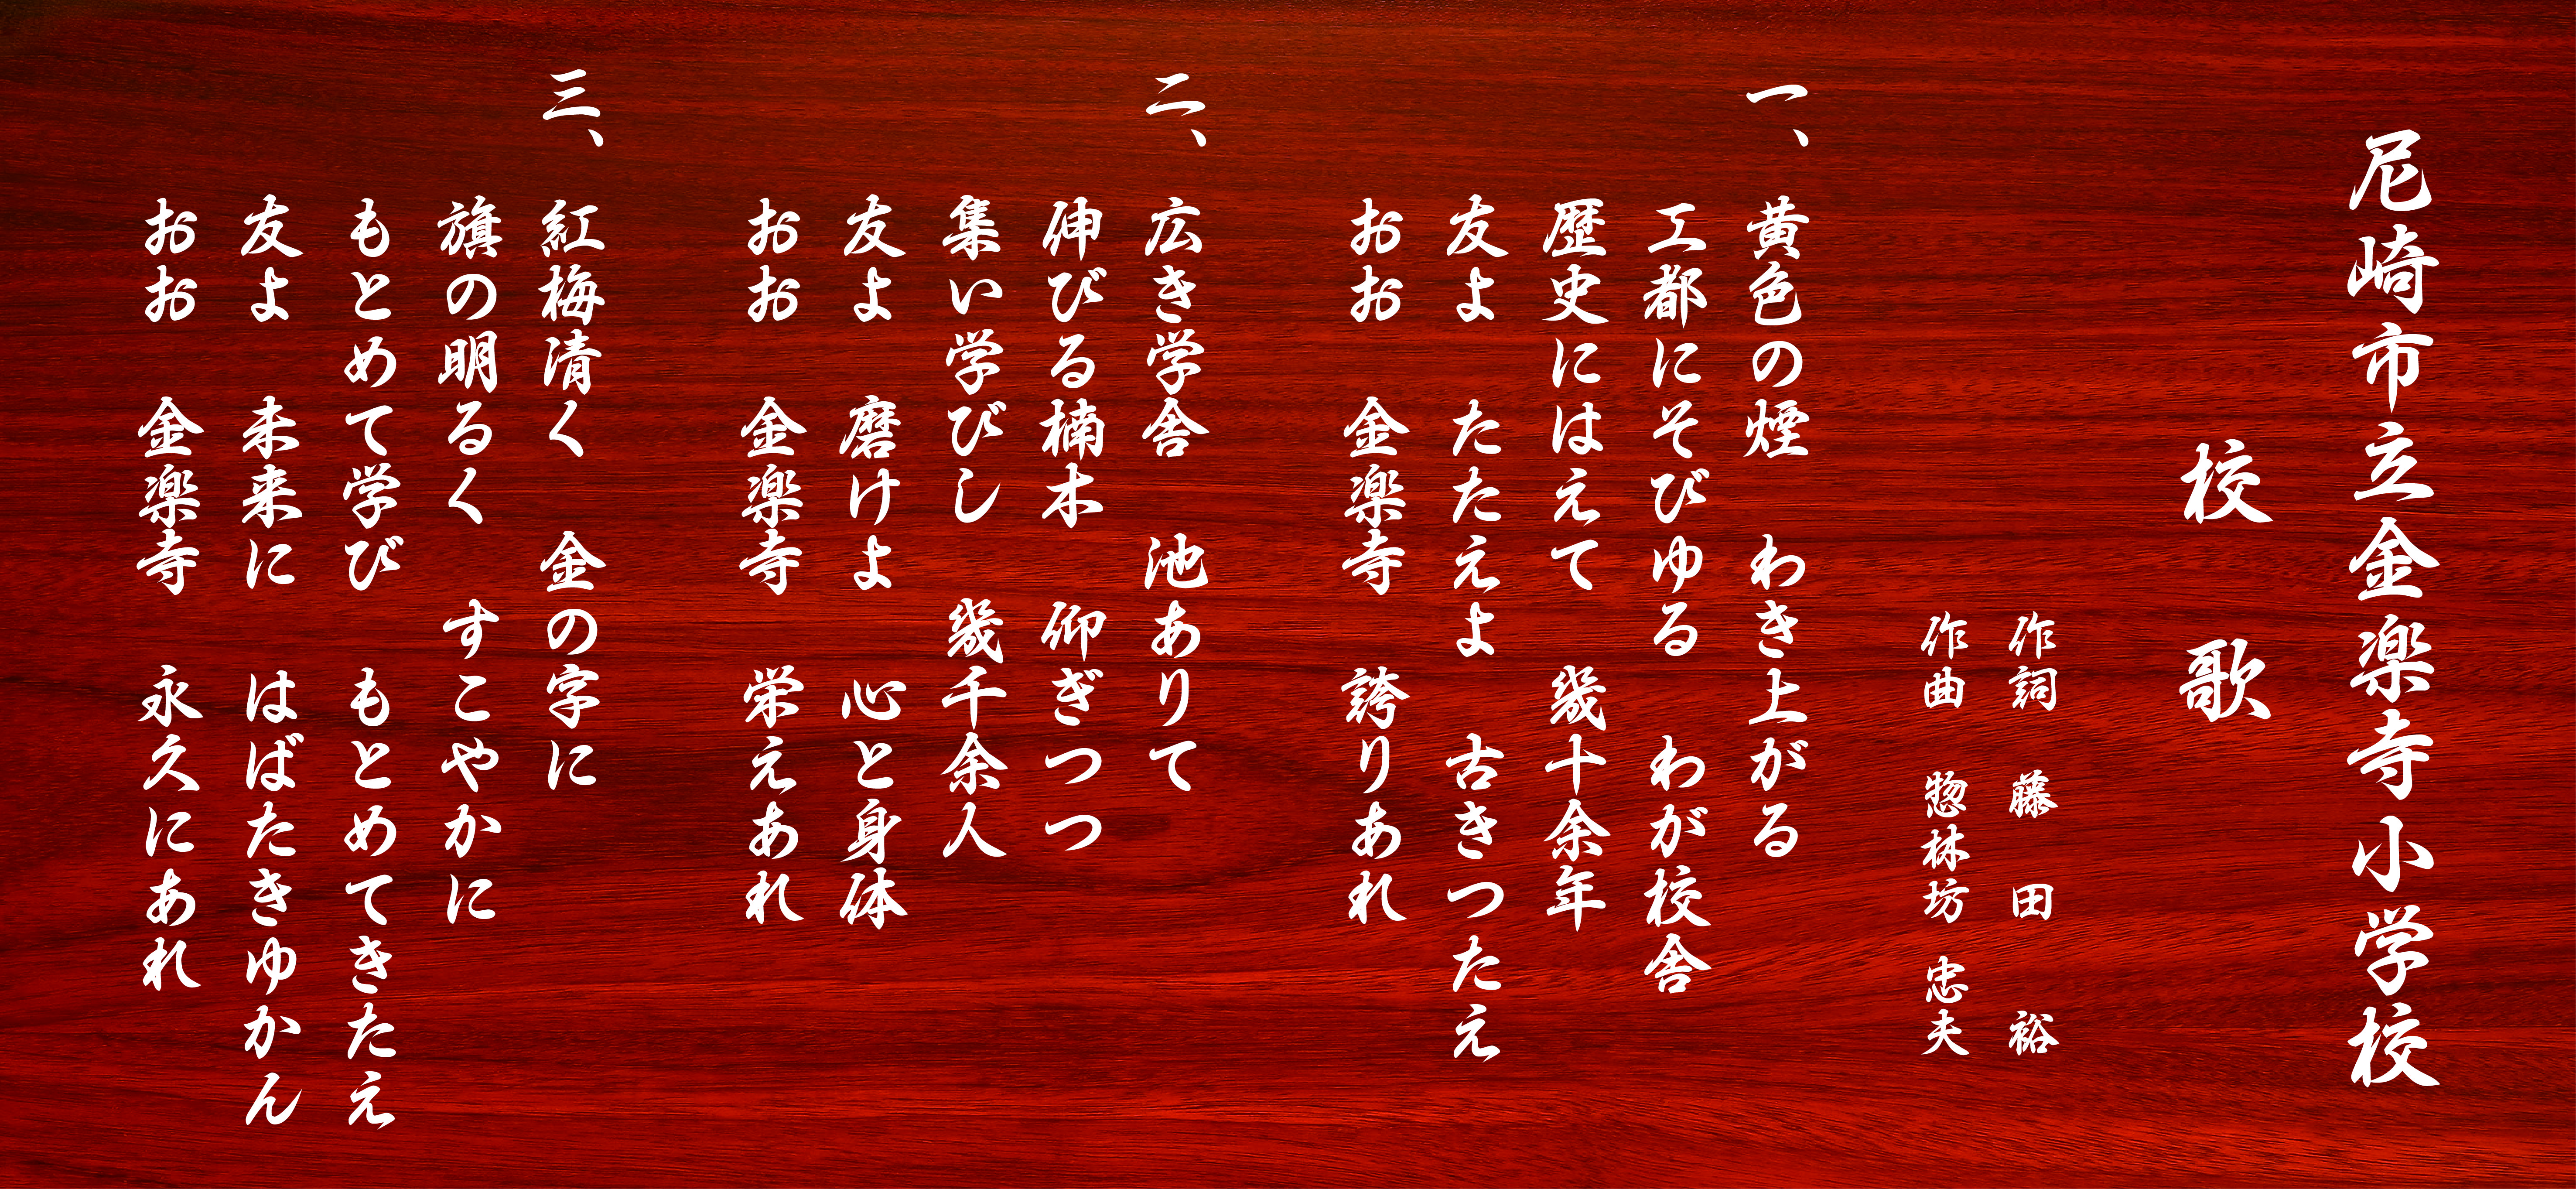 尼崎市立金楽寺小学校
校歌
作詞 藤田裕
作曲 惣林坊 忠夫
一、 黄色の煙 わき上がる
工都にそびゆる わが校舎
歴史にはえて 幾十余年
友よ たたえよ 古きつたえ
おお 金楽寺 誇りあれ
二、 広き学舎 池ありて
伸びる楠木 仰ぎつつ
集い学びし 幾千余人
友よ 磨けよ 心と身体
おお 金楽寺 栄えあれ
三、 紅梅清く 金の字に
旗の明るく すこやかに
もとめて学び もとめてきたえ
友よ 未来に はばたきゆかん
おお 金楽寺 永久にあれ